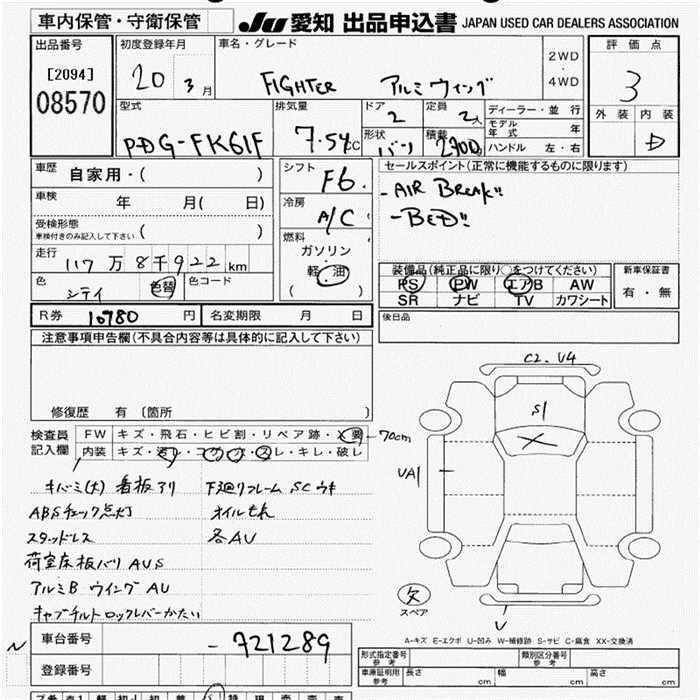 車内保管・守衛保管 JU 愛知 出品申込書 JAPAN USED CAR DEALERS ASSOCIATION
出品番号 初度登録年月 車名・グレード 評価点
[2094] 20 3月 FIGHTER アルミウィング 2WD・4WD 3
08570
型式 排気量 ドア 定員 ディーラー・並行 外装 内装
PDG-FK61F 7.54CC 2 2人 モデル年式 年 D
形状 積載 ハンドル 左・右
バン 2900
車歴 自家用・( ) シフト F6. セールスポイント(正常に機能するものに限ります)
車検 年 月( 日) 冷房 A/C -AIR BREAK!!
受検形態 車検付きのみ記入して下さい ( ) -BED!!
燃料 ガソリン・軽・油 ( )
走行 117万8千922km 装備品(純正品に限り○をつけてください) 新車保証書
PS PW エアB AW 有・無
SR ナビ TV カワシート
色 シティ 色替 色コード
R券 10780円 名変期限 月 日 後日品
注意事項申告欄(不具合内容等は具体的に記入して下さい)
修復歴 有 〔箇所 〕
C2. U4
S1
UA1
欠
スペア
U
検査員記入欄 FW キズ・飛石・ヒビ割・リペア跡・X要 -70cm
内装 キズ・汚レ・コゲ・穴・スレ・キレ・破レ
キバミ(大) 看板アリ 下廻りフレーム SCウキ
ABSチェック点灯 オイルもれ
スタッドレス 各AU
荷室床板バリ AUS
アルミB ウイングAU
キャブチルトロックレバーかたい
A-キズ E-エクボ U-凹み W-補修跡 S-サビ C-腐食 XX-交換済
車台番号 -721289
登録番号
形式指定番号 参考 類別区分番号 参考
車庫証明用 参考 長さ cm 幅 cm 高さ cm